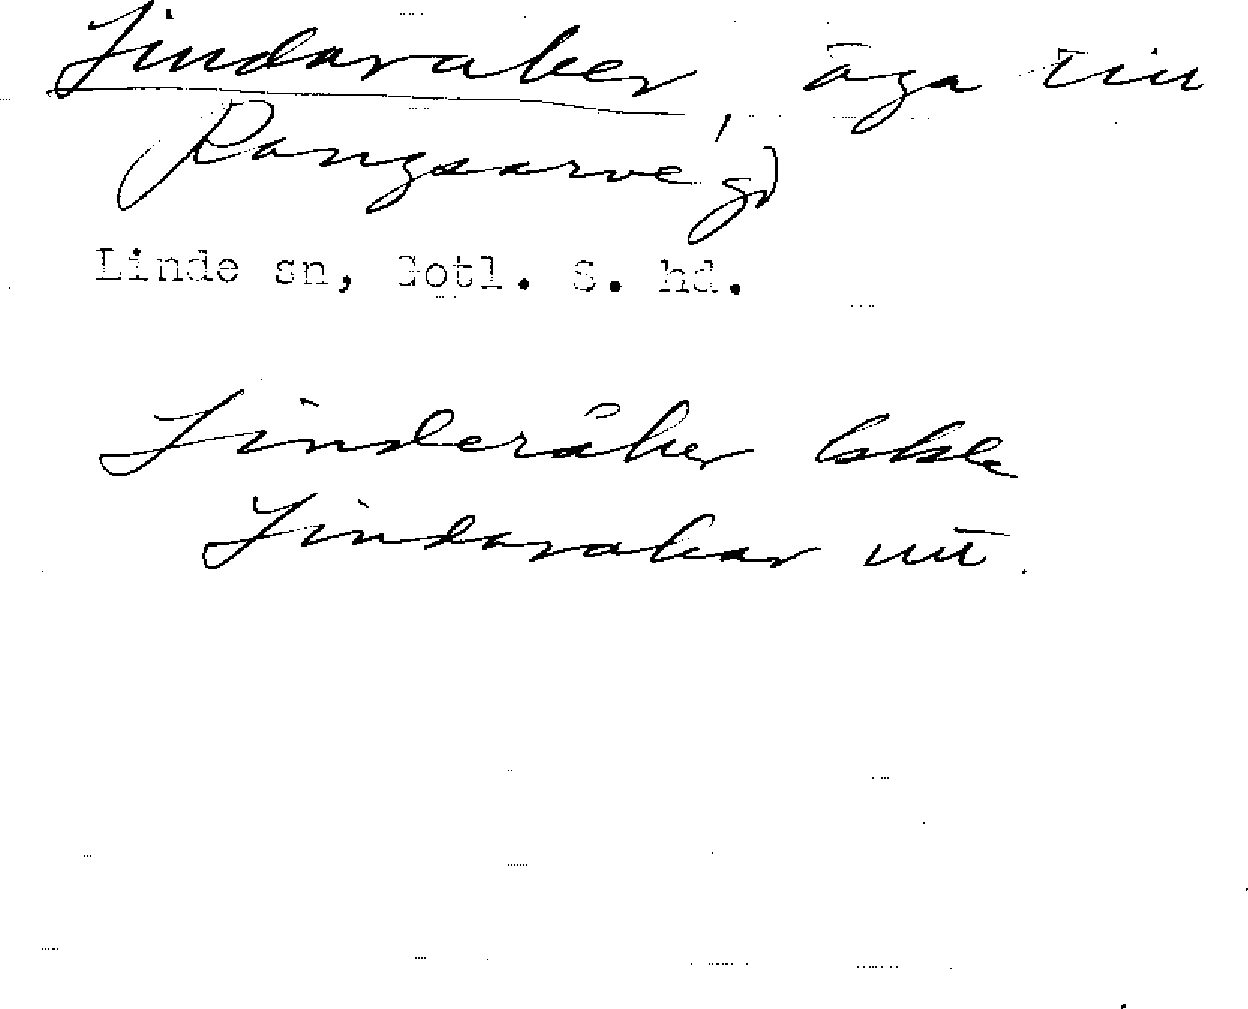 Lindaraker, äga till
Rangsarve gd
Linde sn, Gotl. S. hd.
Linderåker
Lindarakar utt.